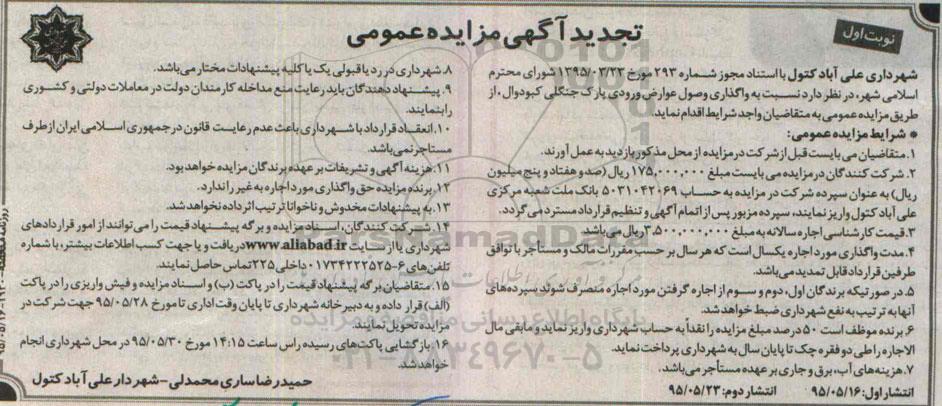 نوبت اول
تجدید آگهی مزایده عمومی
شهرداری علی آباد کتول با استناد مجوز شماره ۲۹۳ مورخ ۱۳۹۵/۰۳/۲۳ شورای محترم
اسلامی شهر، در نظر دارد نسبت به واگذاری وصول عوارض ورودی پارک جنگلی کبودوال، از
طریق مزایده عمومی به متقاضیان واجد شرایط اقدام نماید.
* شرایط مزایده عمومی:
۱. متقاضیان می بایست قبل از شرکت در مزایده از محل مذکور بازدید به عمل آورند.
۲. شرکت کنندگان در مزایده می بایست مبلغ ۱۷۵,۰۰۰,۰۰۰ ریال (صد و هفتاد و پنج میلیون
ریال) به عنوان سپرده شرکت در مزایده به حساب ۵۰۳۱۰۴۲۰۶۹ بانک ملت شعبه مرکزی
علی آباد کتول واریز نمایند، سپرده مزبور پس از اتمام آگهی و تنظیم قرارداد مسترد می گردد.
۳. قیمت کارشناسی اجاره سالانه به مبلغ ۳,۵۰۰,۰۰۰,۰۰۰ ریال می باشد
۴. مدت واگذاری مورد اجاره یکسال است که هر سال بر حسب مقررات مالک و مستأجر با توافق
طرفین قرارداد قابل تمدید می باشد.
۵. در صورتیکه برندگان اول، دوم و سوم از اجاره گرفتن مورد اجاره منصرف شوند سپرده های
آنها به ترتیب به نفع شهرداری ضبط خواهد شد.
۶. برنده موظف است ۵۰ درصد مبلغ مزایده را نقداً به حساب شهرداری واریز نماید و مابقی مال
الاجاره را طی دو فقره چک تا پایان سال به شهرداری پرداخت نماید.
۷. هزینه های آب، برق و جاری بر عهده مستأجر می باشد.
انتشار اول: ۹۵/۰۵/۱۶ انتشار دوم: ۹۵/۰۵/۲۳
۸. شهرداری در رد یا قبولی یک یا کلیه پیشنهادات مختار می باشد.
۹. پیشنهاد دهندگان باید رعایت منع مداخله کارمندان دولت در معاملات دولتی و کشوری
را بنمایند.
۱۰. انعقاد قرارداد با شهرداری باعث عدم رعایت قانون در جمهوری اسلامی ایران از طرف
مستاجر نمی باشد.
۱۱. هزینه آگهی و تشریفات بر عهده برندگان مزایده خواهد بود.
۱۲. برنده مزایده حق واگذاری مورد اجاره به غیر را ندارد.
۱۳. به پیشنهادات مخدوش و ناخوانا ترتیب اثر داده نخواهد شد.
۱۴. شرکت کنندگان، اسناد مزایده و برگه پیشنهاد قیمت را می توانند از امور قراردادهای
شهرداری یا از سایت www.aliabad.ir دریافت و یا جهت کسب اطلاعات بیشتر، با شماره
تلفن های ۶-۰۱۷۳۴۲۲۲۵۲۵ داخلی ۲۲۵ تماس حاصل نمایند.
۱۵. متقاضیان برگه پیشنهاد قیمت را در پاکت (ب) و اسناد مزایده و فیش واریزی را در پاکت
(الف) قرار داده و به دبیرخانه شهرداری تا پایان وقت اداری تا مورخ ۹۵/۰۵/۲۸ جهت شرکت در
مزایده تحویل نمایند.
۱۶. بازگشایی پاکت های رسیده راس ساعت ۱۴:۱۵ مورخ ۹۵/۰۵/۳۰ در محل شهرداری انجام
خواهد شد.
حمیدرضا ساری محمدلی - شهردار علی آباد کتول
پایگاه اطلاع رسانی مناقصه و مزایده
۰۲۱-۸۸۳۴۹۶۷۰-۵